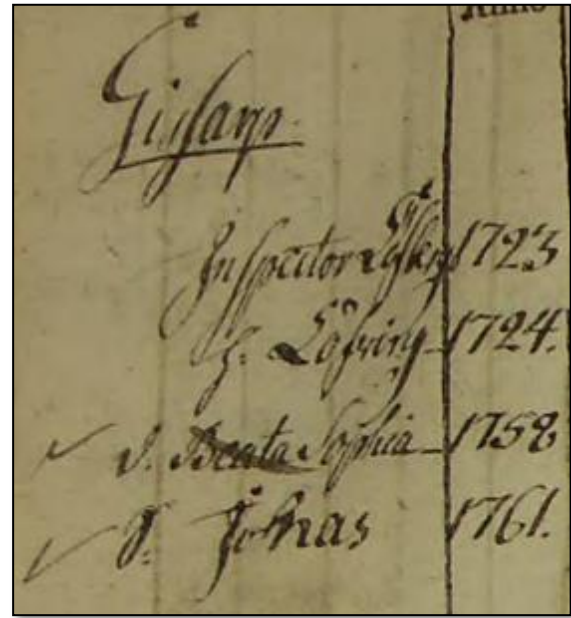 Anno
Gissarp.
Inspector 1723
h. Löfving 1724.
d. Beata Sophia 1758
S. Jonas 1761.